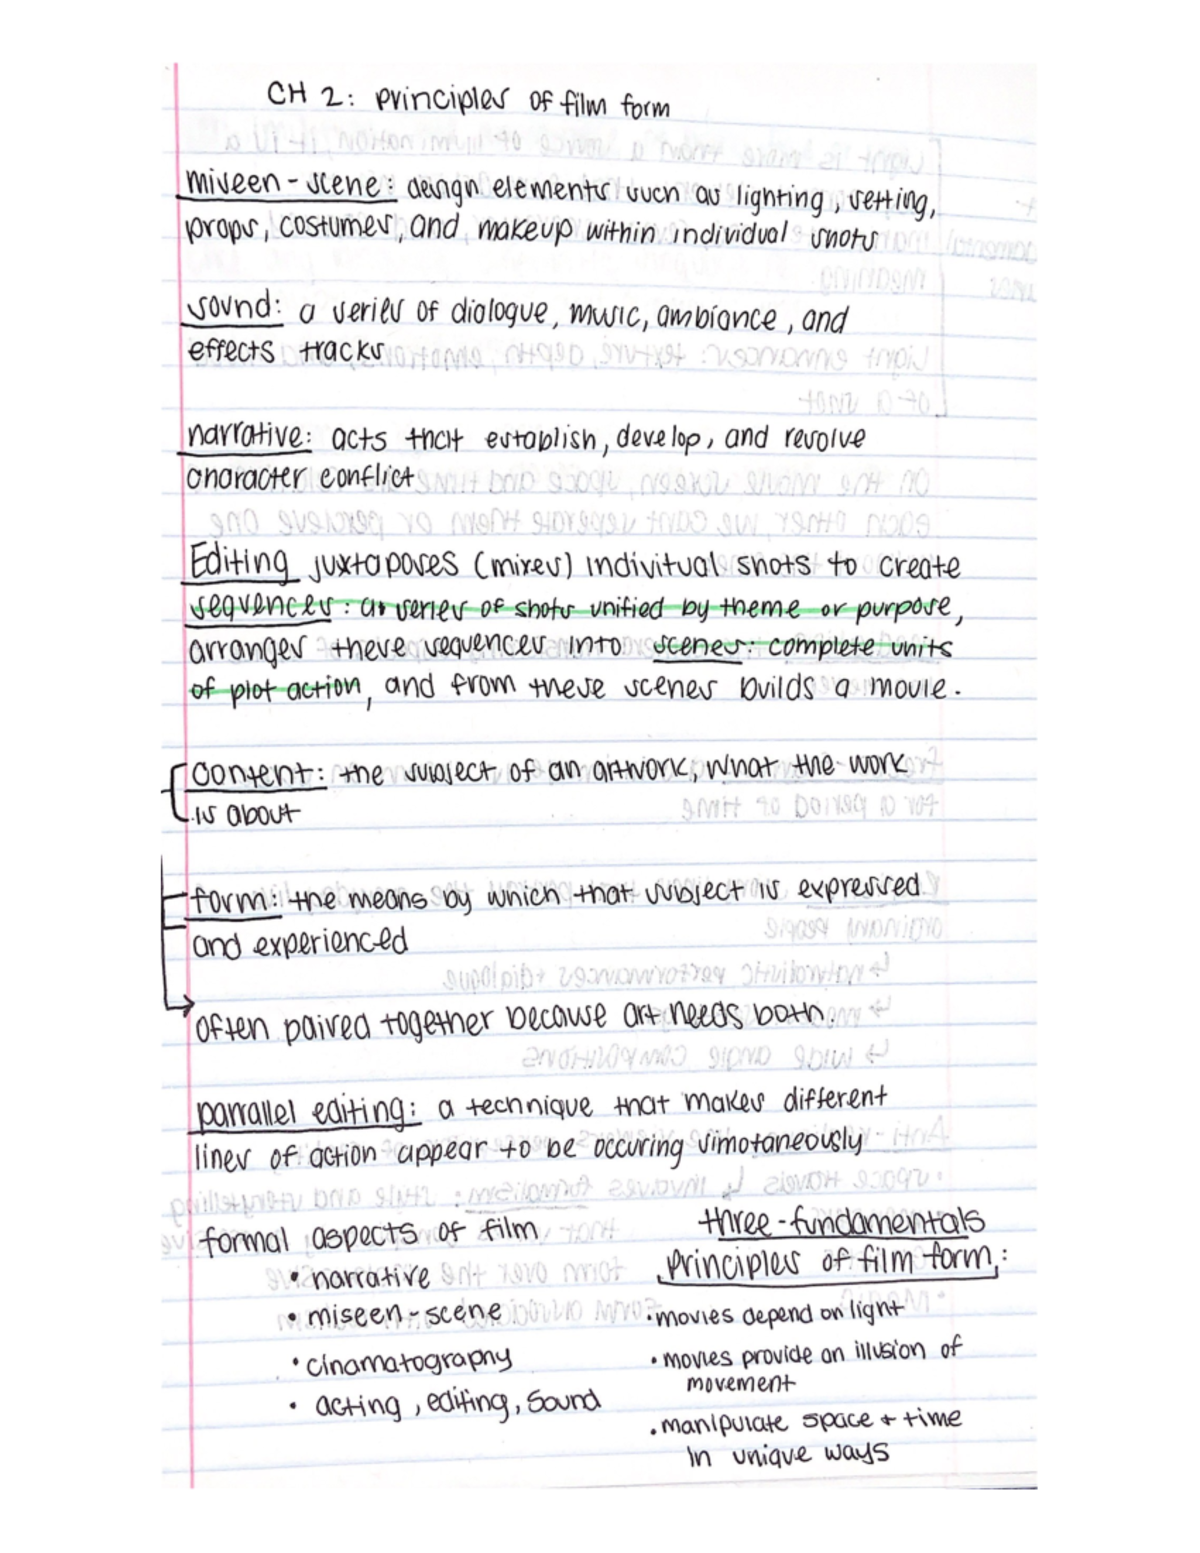 CH 2: principles of film form
miseen-scene: design elements such as lighting, setting,
props, costumes, and makeup within individual shots
sound: a series of dialogue, music, ambiance, and
effects tracks
narrative: acts that establish, develop, and resolve
character conflict
Editing juxtaposes (mixes) indivitual shots to create
sequences: as series of shots unified by theme or purpose,
arranges these sequences into scenes: complete units
of plot action, and from these scenes builds a movie.
Content: the subject of an artwork, what the work
is about
form: the means by which that subject is expressed
and experienced
often paired together because art needs both.
parrallel editing: a technique that makes different
lines of action appear to be occuring simotaneously
formal aspects of film
• narrative
• miseen-scene
• cinamatography
• acting, editing, Sound
three-fundamentals
Principles of film form:
• movies depend on light
• movies provide an illusion of
movement
• manipulate space + time
in unique ways